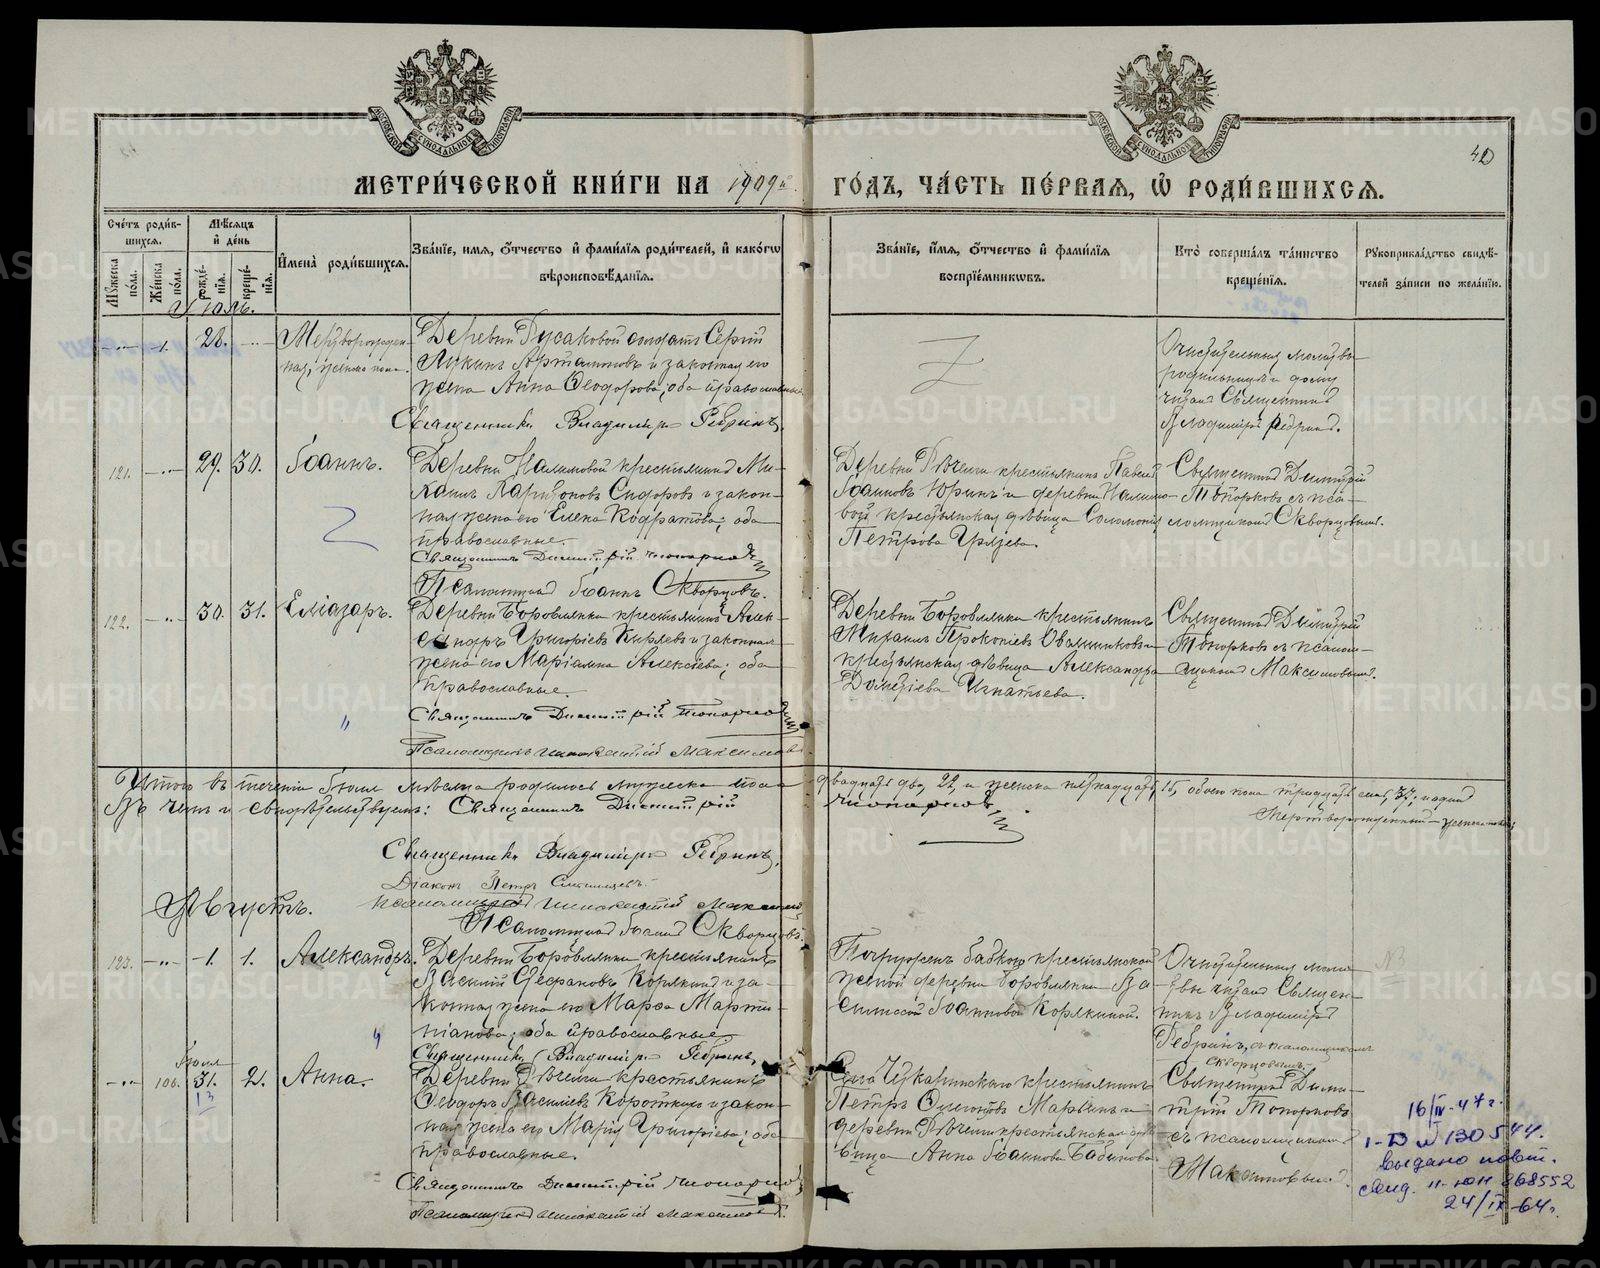 МЕТРИ́ЧЕСКОЙ КНИ́ГИ НА 1909й ГО́ДЪ, ЧА́СТЬ ПЕ́РВАЯ, Ѽ РОДИ́ВШИХСЯ.
40
Сче́тъ роди́в-
шихся.
Му́жеска по́ла.
Же́нска по́ла.
Мѣ́сяцъ
и҆ де́нь
рожде́-
нїя.
креще́-
нїя.
И҆мена̀ роди́вшихся.
Зва́нїе, имя, ѻ҆́тчество и҆ фами́лїя роди́телей, и҆ како́гѡ
вѣроисповѣ́данїя.
Зва́нїе, и҆́мя, ѻ҆́тчество и҆ фами́лїя
воспрїе́мниковъ.
Кто̀ соверша́лъ та́инство
креще́нїя.
Рꙋкоприкла́дство свидѣ́-
телей за́писи по жела́нїю.
Іюль.
1. 28. Мертворожден-
ная, женска пола.
Деревни Русаковой солдатъ Сергій
Лукинъ Артамоновъ и законная его
жена Анна Ѳеодорова; оба православные
Священникъ Владиміръ Ребринъ.
Очистительныя молитвы
родильницѣ и дому
читалъ Священникъ
Владиміръ Ребринъ.
121. 29. 30. Іоаннъ.
Деревни Налимовой крестьянинъ Ми-
хаилъ Харитоновъ Сидоровъ и закон-
ная жена его Елена Кодратова; оба
православные.
Священникъ Димитрій Топорковъ
Псаломщикъ Іоаннъ Скворцовъ.
Деревни Рѣчелги крестьянинъ Павелъ
Іоанновъ Юринъ и деревни Налимо-
вой крестьянская дѣвица Соломонія
Петрова
Священникъ Димитрій
Топорковъ съ пса-
ломщикомъ Скворцовымъ.
122. 30. 31. Еліазаръ.
Деревни Боровлянки крестьянинъ Алек-
сандръ Григоріевъ и законная
жена его Маріамна Алексіева; оба
православные.
Священникъ Димитрій Топорковъ
Псаломщикъ Иннокентій Максимовъ
Деревни Боровлянки крестьянинъ
Михаилъ Прокопіевъ Овчинниковъ и
крестьянская дѣвица Александра
Игнатьева.
Священникъ Димитрій
Топорковъ съ псалом-
щикомъ Максимовымъ.
Итого въ теченіи Іюля мѣсяца родилось мужеска пола двадцать два, 22, и женска пятнадцать, 15, обоего пола тридцать семь, 37, одинъ
Въ чемъ и свидѣтельствуемъ: Священникъ Димитрій Топорковъ
Мертворожденный – женска пола;
Священникъ Владиміръ Ребринъ,
Діаконъ Петръ
Псаломщикъ Иннокентій Максимовъ
Псаломщикъ Іоаннъ Скворцовъ.
Августъ.
123. 1. 1. Александръ.
Деревни Боровлянки крестьянинъ
Василій Стефановъ Корякинъ и за-
конная жена его Марѳа Марти-
ніанова; оба православные
Священникъ Владиміръ Ребринъ,
Погруженъ бабкою крестьянской
женой деревни Боровлянки Ва-
силиссой Іоанновой Корякиной.
Очистительныя моли-
твы читалъ Священ-
никъ Владиміръ
Ребринъ, съ псаломщикомъ
Скворцовымъ.
Іюля
106. 31. 2. Анна.
13
Деревни Рѣчелги крестьянинъ
Ѳеодоръ Василіевъ Короткихъ и закон-
ная жена его Марія Григоріева; оба
православные.
Священникъ Димитрій Топорковъ
Псаломщикъ Иннокентій Максимовъ.
Села Чукаринскаго крестьянинъ
Петръ Марьинъ и
деревни Рѣчелги крестьянская дѣ-
вица Анна Іоаннова Бабинова.
Священникъ Дими-
трій Топорковъ
съ псаломщикомъ
Максимовымъ.
16/IV-47г.
I-D № 130544.
выдано повт.
свид. II-ЮН 268552
24/IX-64г.
METRIKI.GASO-URAL.RU